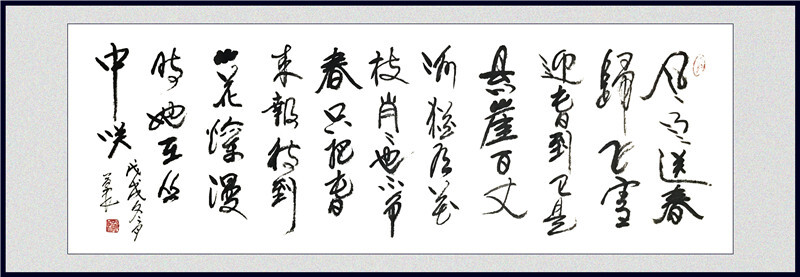 风雨送春
歸飞雪
迎春到已是
悬崖百丈
冰犹有花
枝俏俏也不争
春只把春
来報待到
山花爛漫
时她在丛
中咲
戊戌冬月